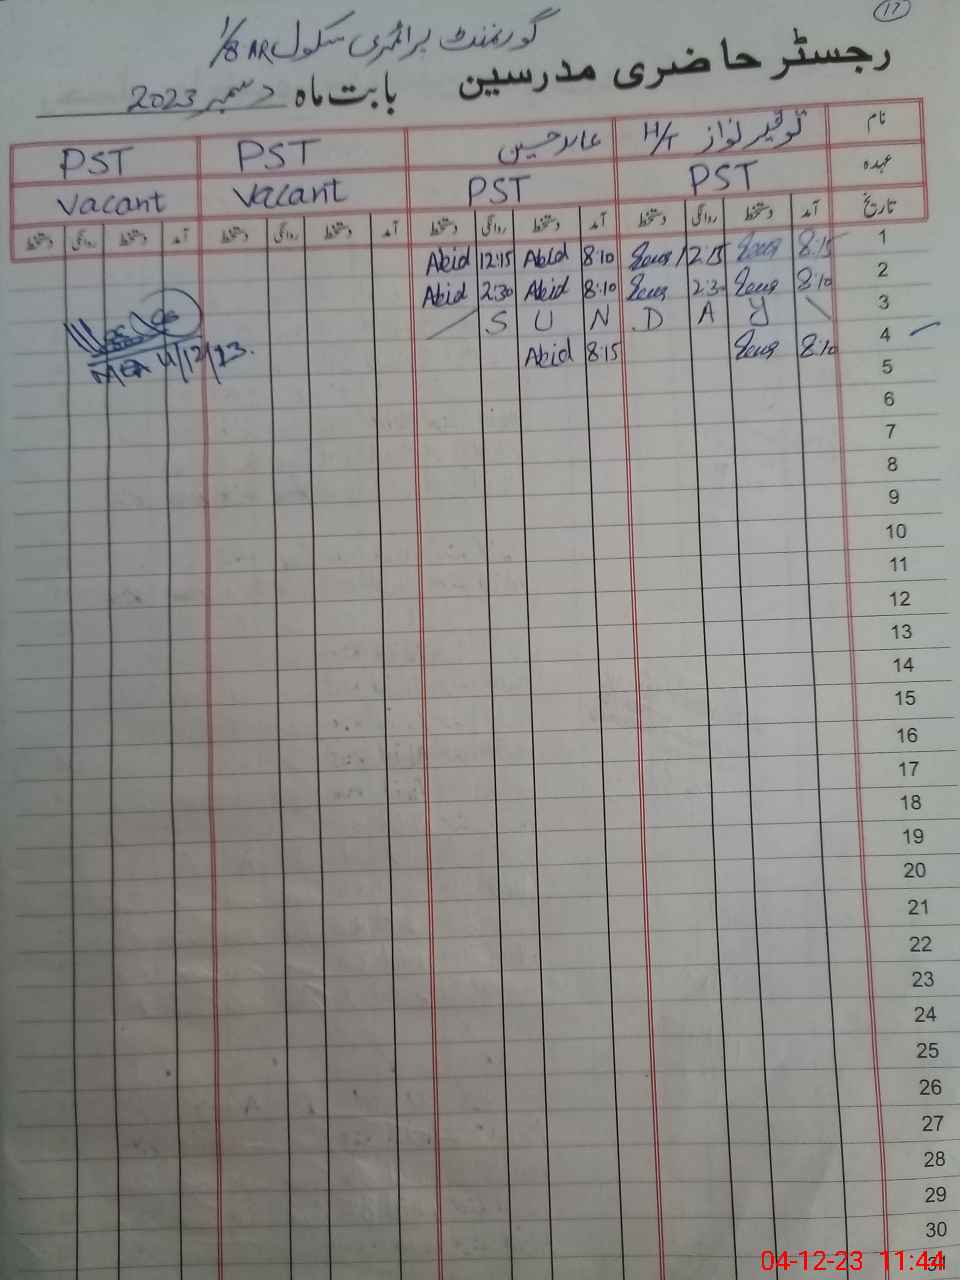 17
گورنمنٹ پرائمری سکول 1/8 AR
رجسٹر حاضری مدرسین بابت ماہ دسمبر 2023
نام توقیر نواز H/T عابد حسین PST PST
عہدہ PST PST Vacant Vacant
تاریخ آمد دستخط روانگی دستخط آمد دستخط روانگی دستخط آمد دستخط روانگی دستخط آمد دستخط روانگی دستخط
1 8:15 12:15 8:10 Abid 12:15 Abid
2 8:10 2:30 8:10 Abid 2:30 Abid
3 S U N D A Y
4 8:10 8:15 Abid
MEA 4/12/23.
5
6
7
8
9
10
11
12
13
14
15
16
17
18
19
20
21
22
23
24
25
26
27
28
29
30
31
04-12-23 11:44